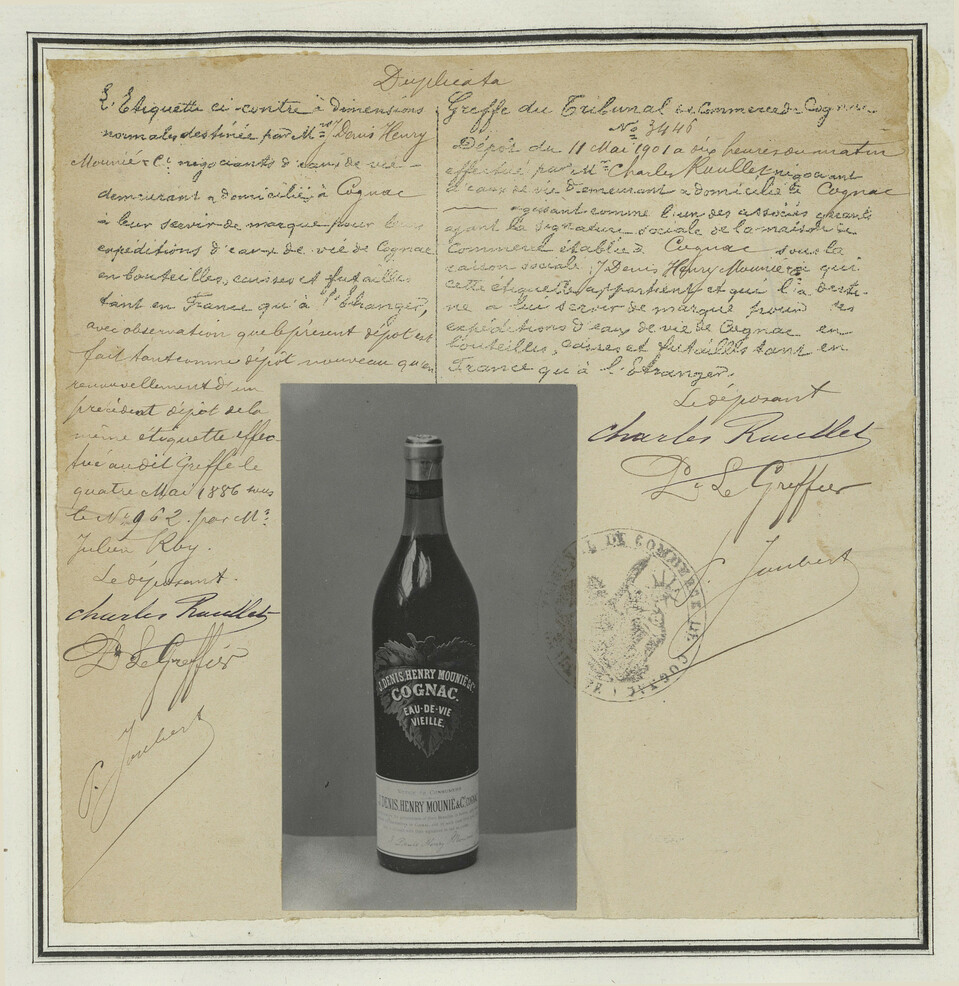 Duplicata
L'Etiquette ci-contre à dimensions
normales destinée par Mrs J Denis Henry
Mounié & Cie négociants d'eaux de vie
demeurant & domiciliés à Cognac
à leur servir de marque pour leurs
expéditions d'eaux de vie de Cognac
en bouteilles, caisses et futailles
tant en France qu'à l'Etranger,
avec observation que le présent dépôt est
fait tant comme dépôt nouveau qu'en
renouvellement d'un
précédent dépôt de la
même étiquette effec-
tué audit Greffe le
quatre Mai 1886 sous
le No 962 par Mr
Julien Roy.
Le déposant.
Charles Roullet
Pr Le Greffier
P. Joubert
Greffe du Tribunal de Commerce de Cognac
No 3446
Dépôt du 11 Mai 1901 à dix heures du matin
effectué par Mr Charles Roullet négociant
d'eaux de vie demeurant & domicilié à Cognac
agissant comme l'un des associés gérants
ayant la signature sociale de la maison de
Commerce établie à Cognac sous la
raison sociale: J Denis Henry Mounié & Cie qui
cette étiquette appartient et que l'a desti-
né à lui servir de marque pour ses
expéditions d'eaux de vie de Cognac en
bouteilles, caisses et futailles tant en
France qu'à l'Etranger.
Le déposant
Charles Roullet
Pr Le Greffier
P. Joubert
TRIBUNAL DE COMMERCE DE COGNAC
J. DENIS, HENRY MOUNIÉ & Co
COGNAC.
EAU-DE-VIE
VIEILLE.
J. DENIS, HENRY MOUNIÉ & Co COGNAC
J. Denis Henry Mounié